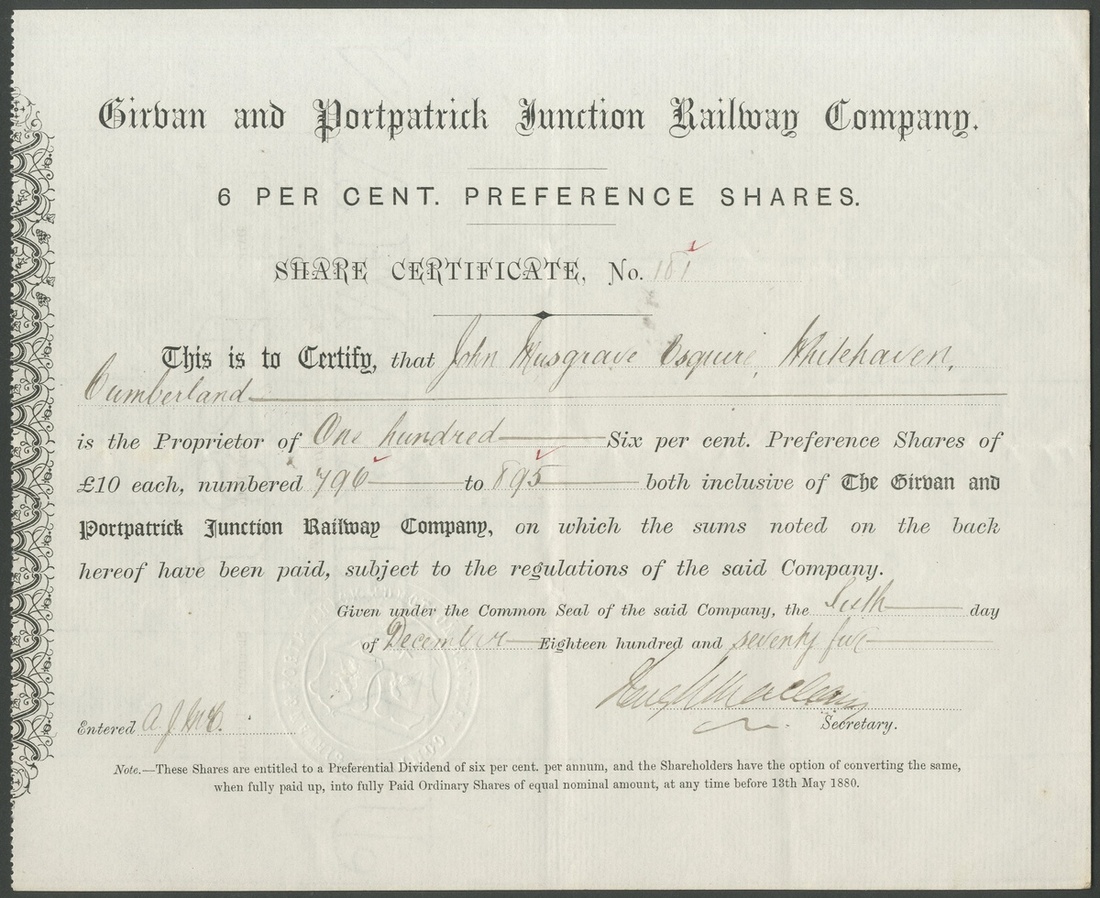 Girvan and Portpatrick Junction Railway Company.
6 PER CENT. PREFERENCE SHARES.
SHARE CERTIFICATE, No. 181
This is to Certify, that John Musgrave Esquire, Whitehaven,
Cumberland
is the Proprietor of One hundred Six per cent. Preference Shares of
£10 each, numbered 796 to 895 both inclusive of The Girvan and
Portpatrick Junction Railway Company, on which the sums noted on the back
hereof have been paid, subject to the regulations of the said Company.
Given under the Common Seal of the said Company, the Sixth day
of December Eighteen hundred and seventy five
Hugh Maclean
Entered Secretary.
Note.—These Shares are entitled to a Preferential Dividend of six per cent. per annum, and the Shareholders have the option of converting the same,
when fully paid up, into fully Paid Ordinary Shares of equal nominal amount, at any time before 13th May 1880.